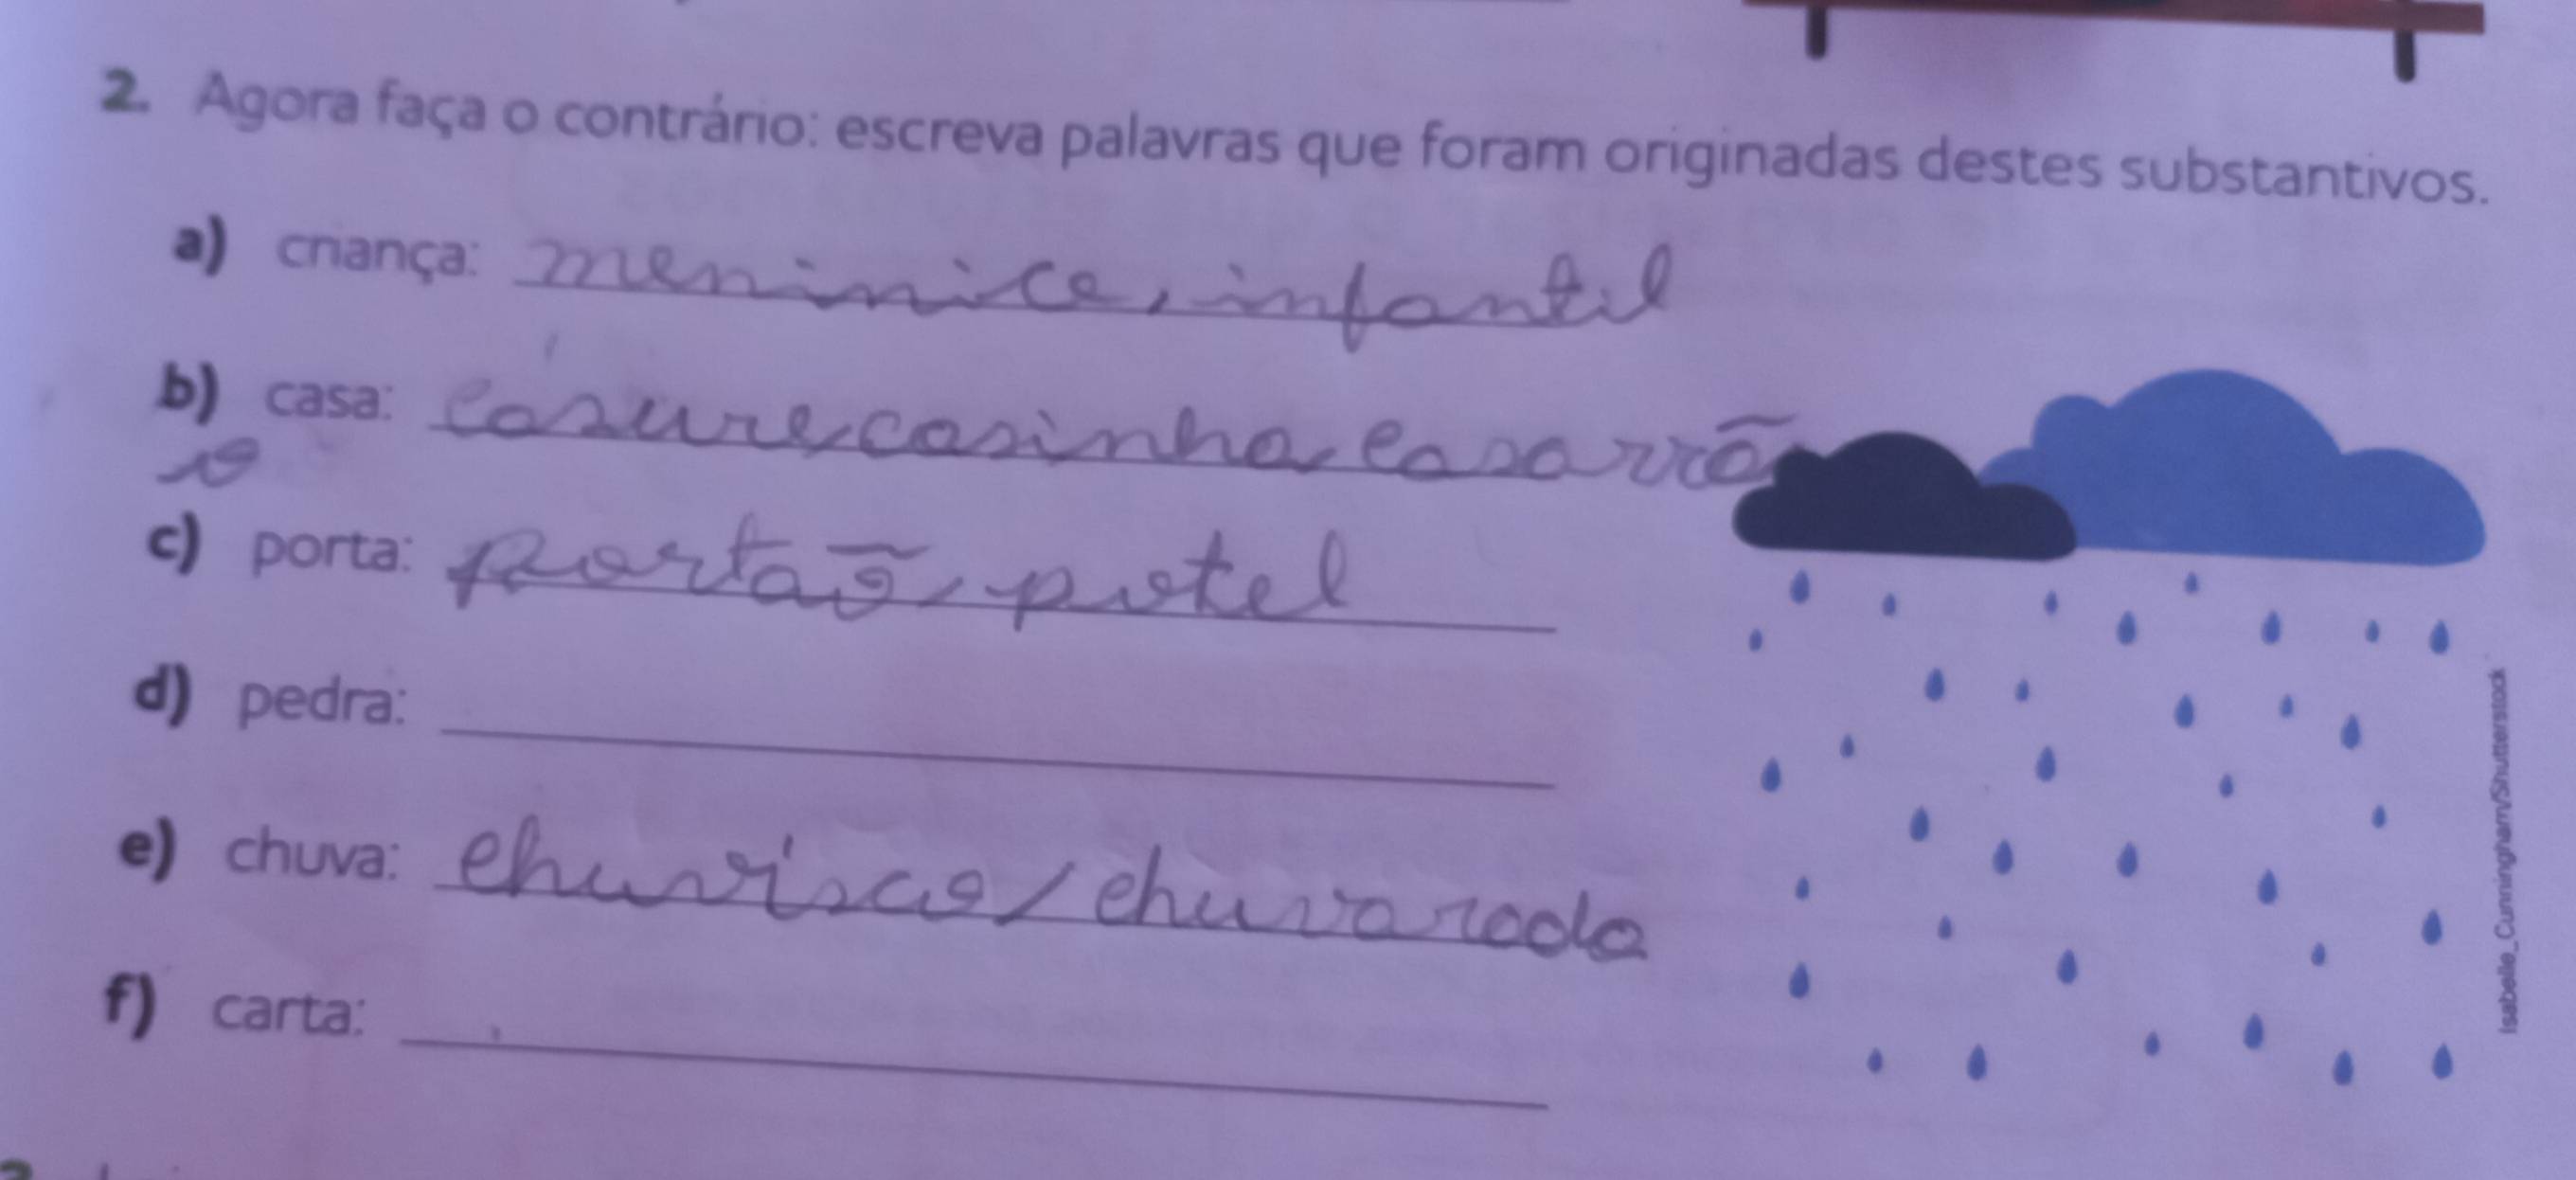 2. Agora faça o contrário: escreva palavras que foram originadas destes substantivos.
a) criança: meninice, infantil
b) casa: casinha, casarrão
c) porta: portão, potel
d) pedra:
e) chuva: chuvisco/chuvarada
f) carta:
Isabelle_Cunningham/Shutterstock